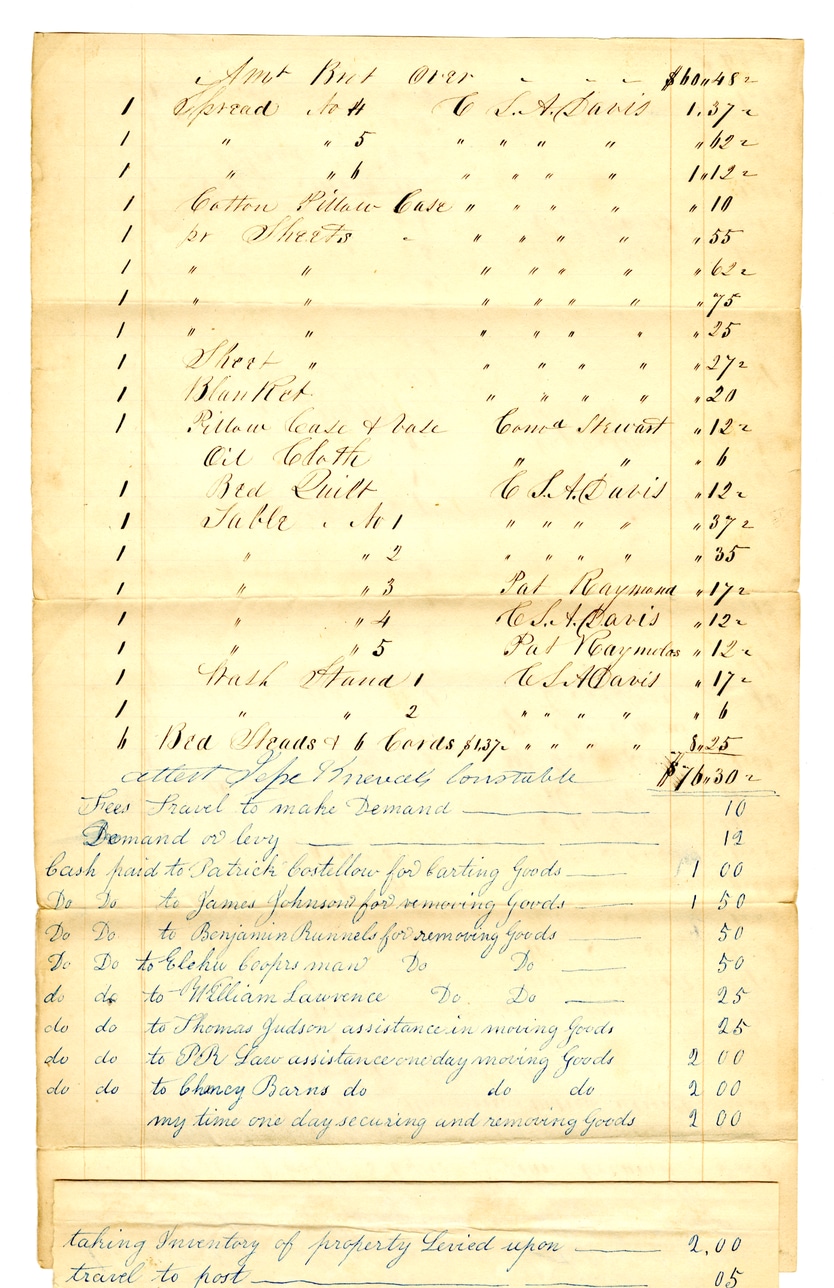 Amt Brot Over " " " $60"48 2
1 Spread No 4 C. S. A. Davis 1.37 2
1 " " 5 " " " " " 62 2
1 " " 6 " " " " 1"12 2
1 Cotton Pillow Case " " " " " 10
1 pr Sheets " " " " " 55
1 " " " " " " " 62 2
1 " " " " " " " 75
1 " " " " " " " 25
1 Sheet " " " " " " 27 2
1 Blanket " " " " " 20
1 Pillow Case & Vase Conod Stewart " 12 2
Oil Cloth " " " 6
1 Bed Quilt C. S. A. Davis " 12 2
1 Table " No 1 " " " " " 37 2
1 " " 2 " " " " " 35
1 " " 3 Pat Raymond " 17 2
1 " " 4 C. S. A. Davis " 12 2
1 " " 5 Pat Raymolds " 12 2
1 Wash Stand 1 C S A Davis " 17 2
1 " " 2 " " " " " 6
6 Bed Steads & 6 Cords $1.37 2 " " " " 8"25
attest Constable $76"30 2
Fees Travel to make Demand 10
Demand or levy 12
Cash paid to Patrick Costellow for Carting Goods 1 00
Do Do to James Johnson for removing Goods 1 50
Do Do to Benjamin Runnels for removing Goods 50
Do Do to Elehu Cooprs man Do Do 50
do do to William Lawrence Do. Do 25
do do to Thomas Judson assistance in moving Goods 25
do do to P R Law assistance one day moving Goods 2 00
do do to Chancy Barns do do do 2 00
my time one day securing and removing Goods 2 00
taking Inventory of property Levied upon 2,00
travel to post 05